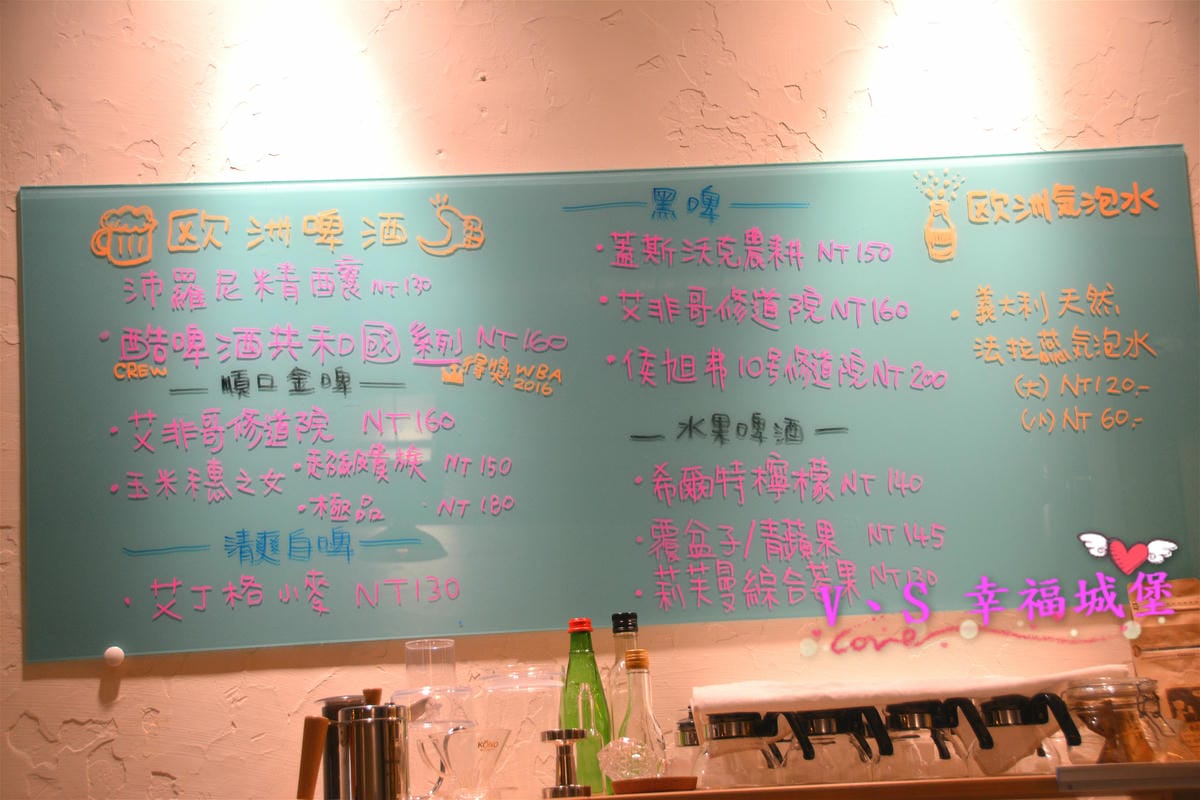 欧洲啤酒
沛羅尼精釀 NT 130
·酷啤酒共和國系列 NT 160
CREW
得獎 WBA 2016
順口金啤
·艾非哥修道院 NT 160
·玉米穗之女 ·超級貴族 NT 150
·極品 NT 180
清爽白啤
·艾丁格小麥 NT 130
黑啤
·蓋斯沃克農耕 NT 150
·艾非哥修道院 NT 160
·侯旭弗10号修道院 NT 200
水果啤酒
·希爾特檸檬 NT 140
·覆盆子/青蘋果 NT 145
·莉芙曼綜合莓果 NT 130
欧洲氣泡水
·義大利天然
法拉蕊气泡水
(大) NT 120.-
(小) NT 60.-
V、S 幸福城堡
KŌNO